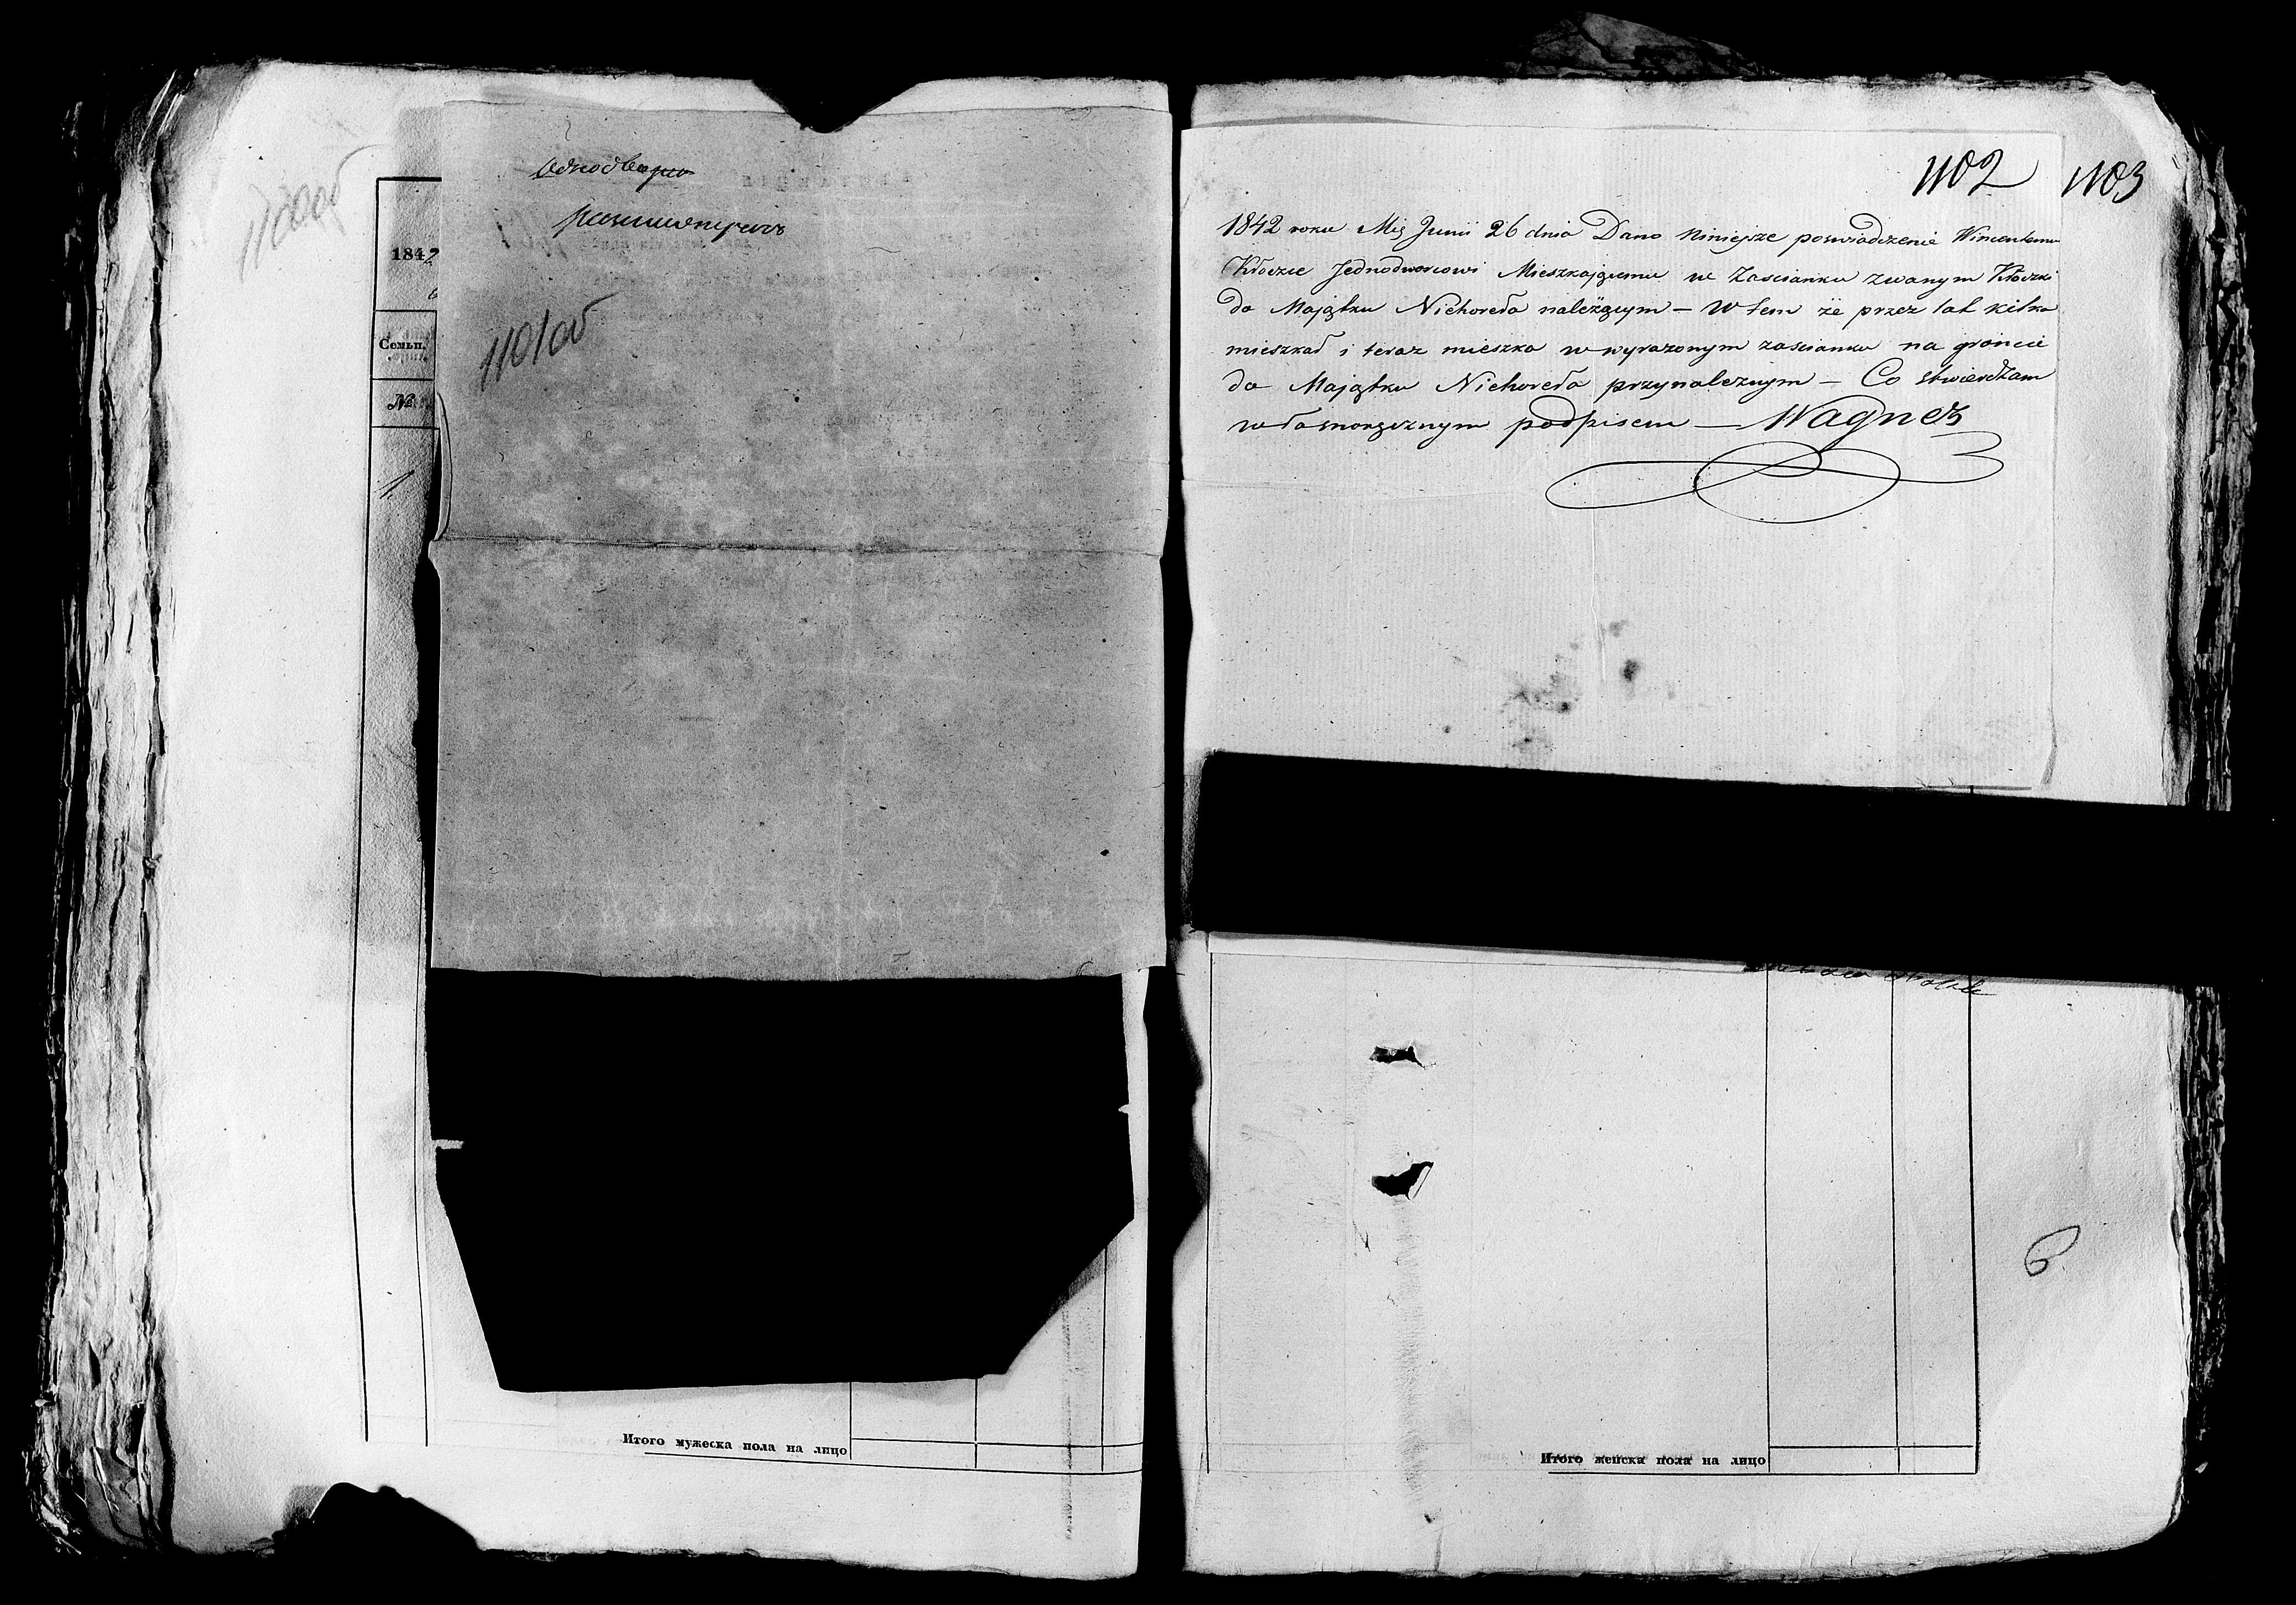 1100об
1842
Семьи.
№
1.
1101об
1102 1103
1842 roku Mię Junii 26 dnia Dano Niniejsze poswiadczenie Wincentemu
Kłoczce Jednodworcowi Mieszkającemu w Zascianku zwanym Kłoczki
do Majątku Nichoreła należącym — W tem że przez lat kilka
mieszkał i teraz mieszka w wyrazonym zascianku na gróncie
do Majątku Nichoreła przynaleznym — Co stwierdzam
własnoręcznym podpisem — Wagner
6
Итого мужеска пола на лицо
Итого женска пола на лицо